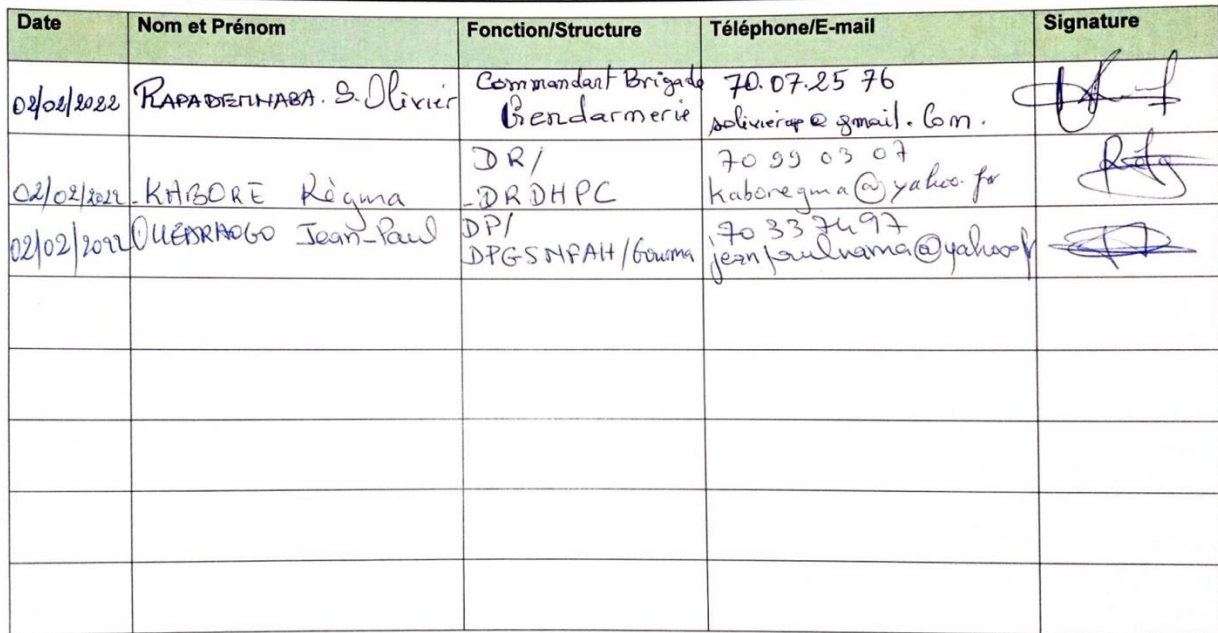 Date Nom et Prénom Fonction/Structure Téléphone/E-mail Signature
02/02/2022 RAPADEMNABA. S. Olivier Commandant Brigade Gendarmerie 70.07.25 76 solivierap@gmail.com.
02/02/2022 - KABORE Règma DR/ -DRDHPC 70 99 03 07 kaboregma@yahoo.fr
02/02/2022 OUEDRAOGO Jean-Paul DP/ DPGSNFAH/Gourma 70 33 74 97